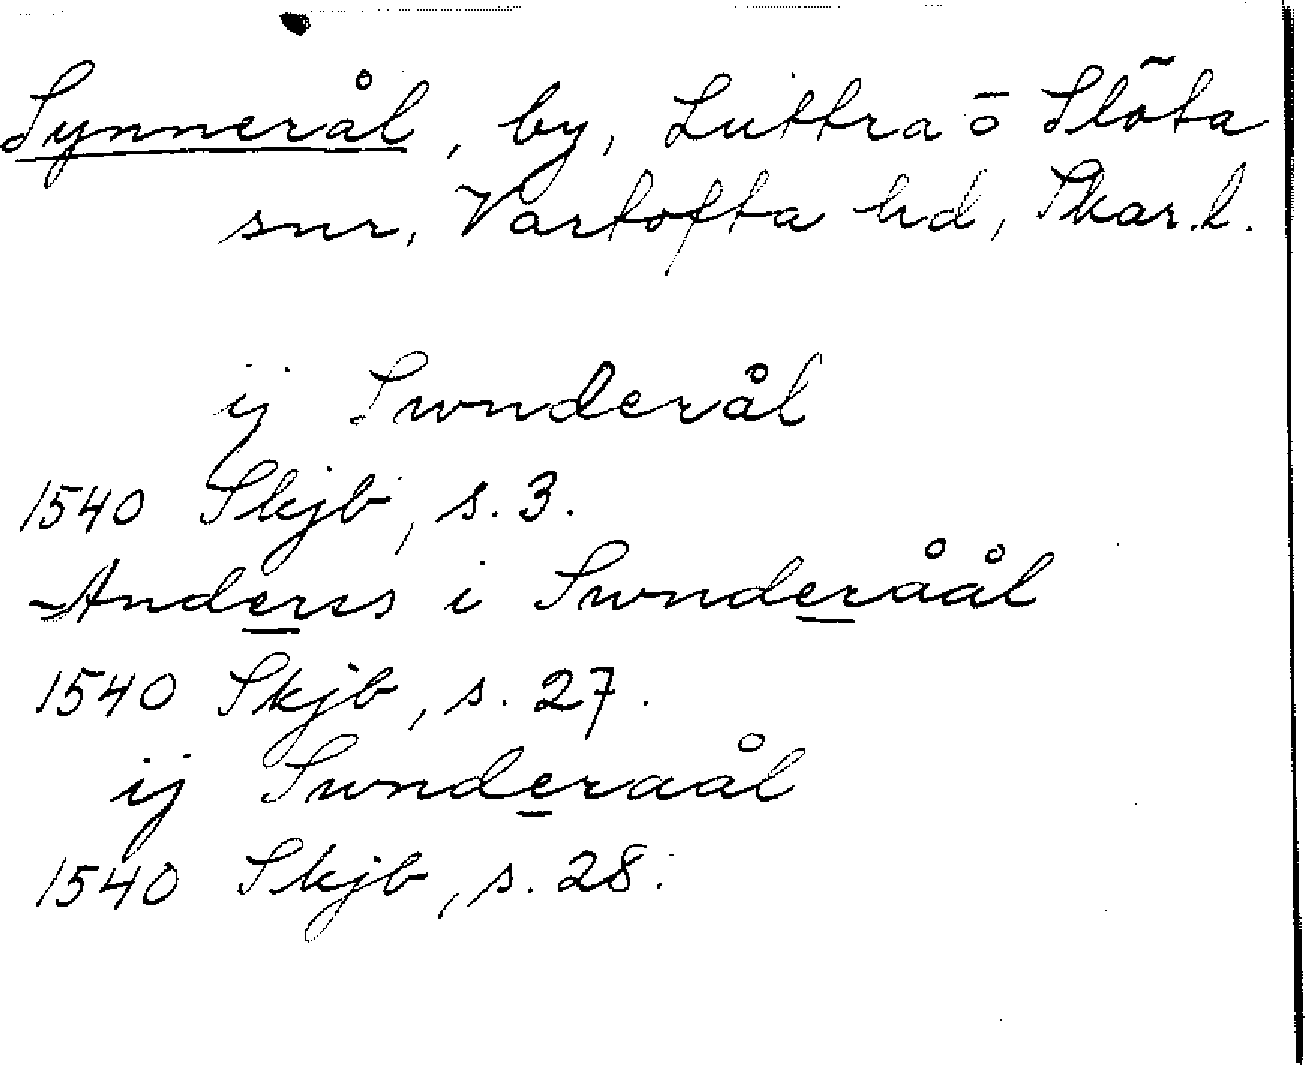 Synnerål, by, Luttra o̅ Slöta
snr, Vartofta hd, Skar.l.
ij Swnderål
1540 Skjb, s. 3.
Anders i Swnderåål
1540 Skjb, s. 27.
ij Swnderaål
1540 Skjb, s. 28.